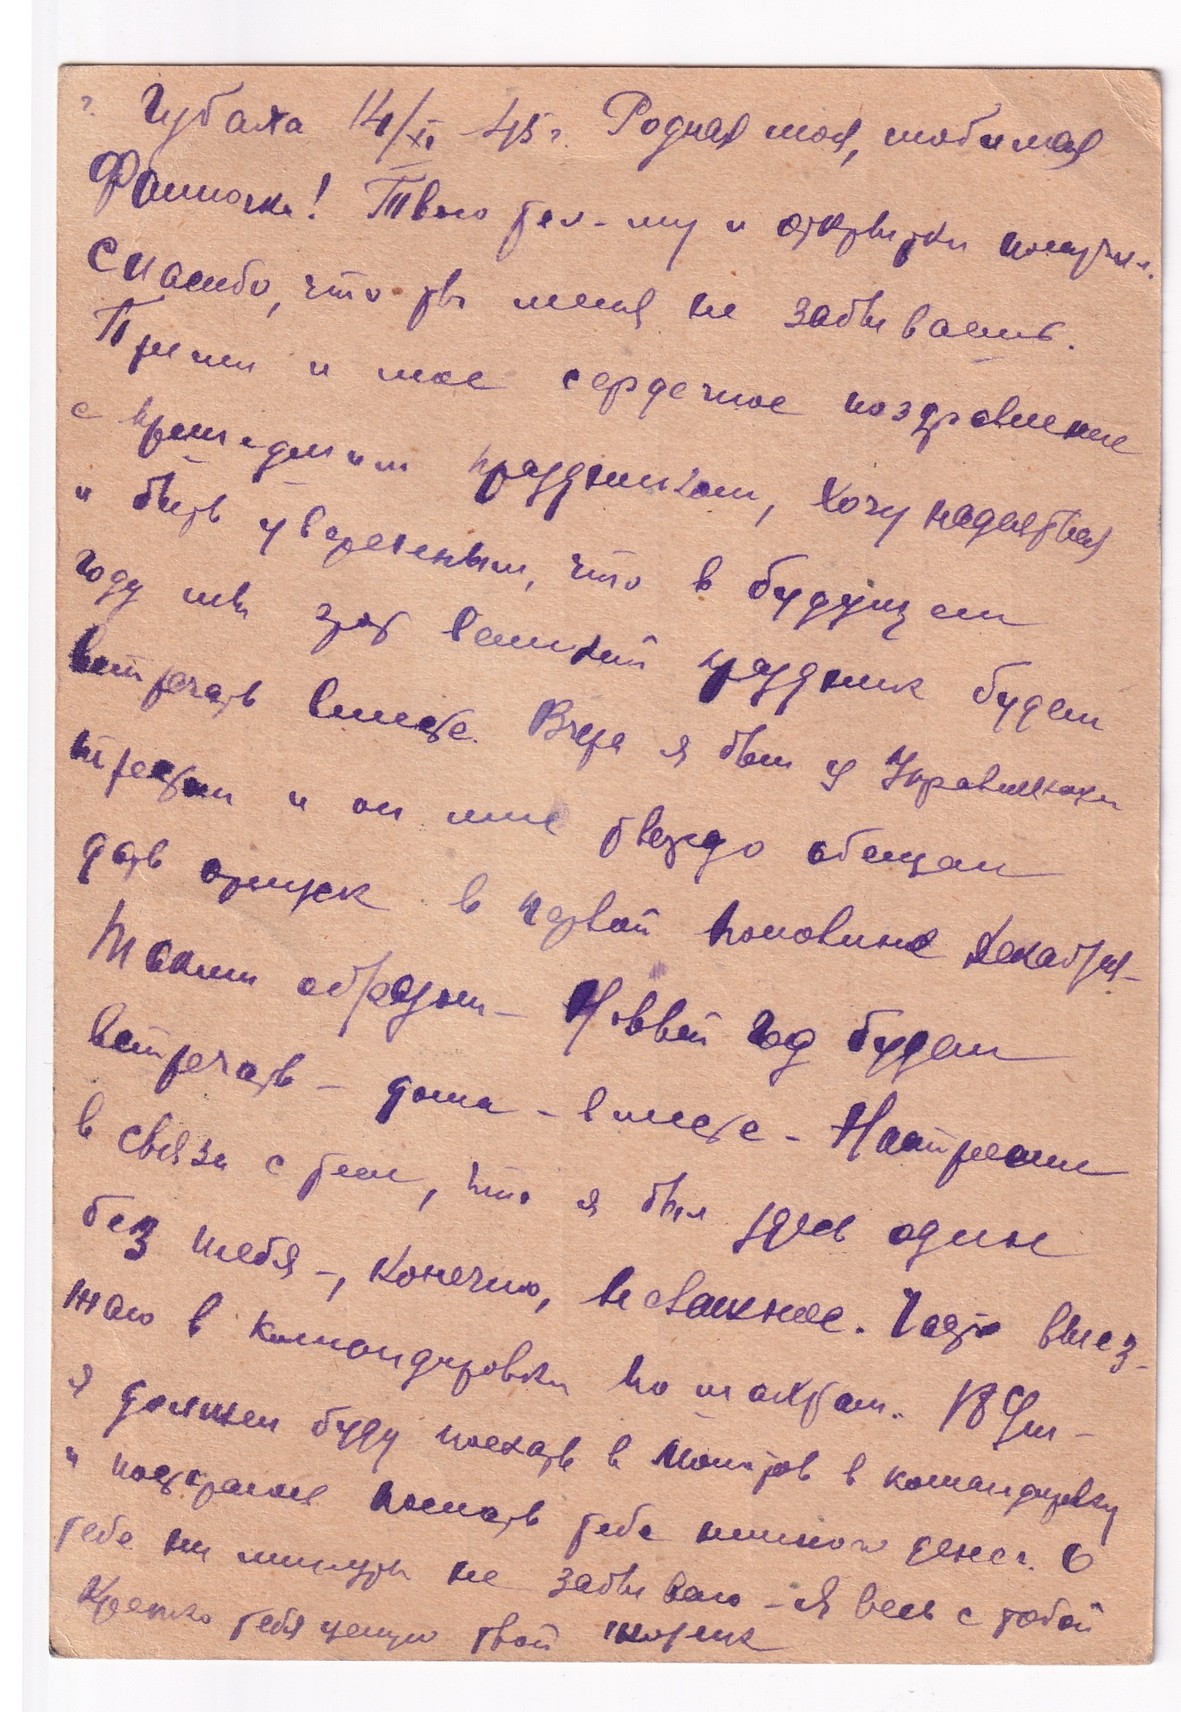 г. Губаха 14/XI 45 г. Родная моя, любимая
Фаиночка! Твою тел-му и открытки получил.
Спасибо, что ты меня не забываешь.
Прими и мое сердечное поздравление
с прошедшим праздником, хочу надеяться
и быть уверенным, что в будущем
году мы этот великий праздник будем
встречать вместе. Вчера я был у Управляющ
трестом и он мне твердо обещал
дать отпуск в первой половине декабря-
Таким образом - Новый год будем
встречать - дома - вместе - Настроение
в связи с тем, что я был здесь один
без тебя -, конечно, неважное. Часто выез-
жаю в командировки по шахтам.
я должен буду поехать в Молотов в командировку
и постараюсь послать тебе немного денег. О
тебе ни минуты не забываю - Я весь с тобой
Крепко тебя целую твой